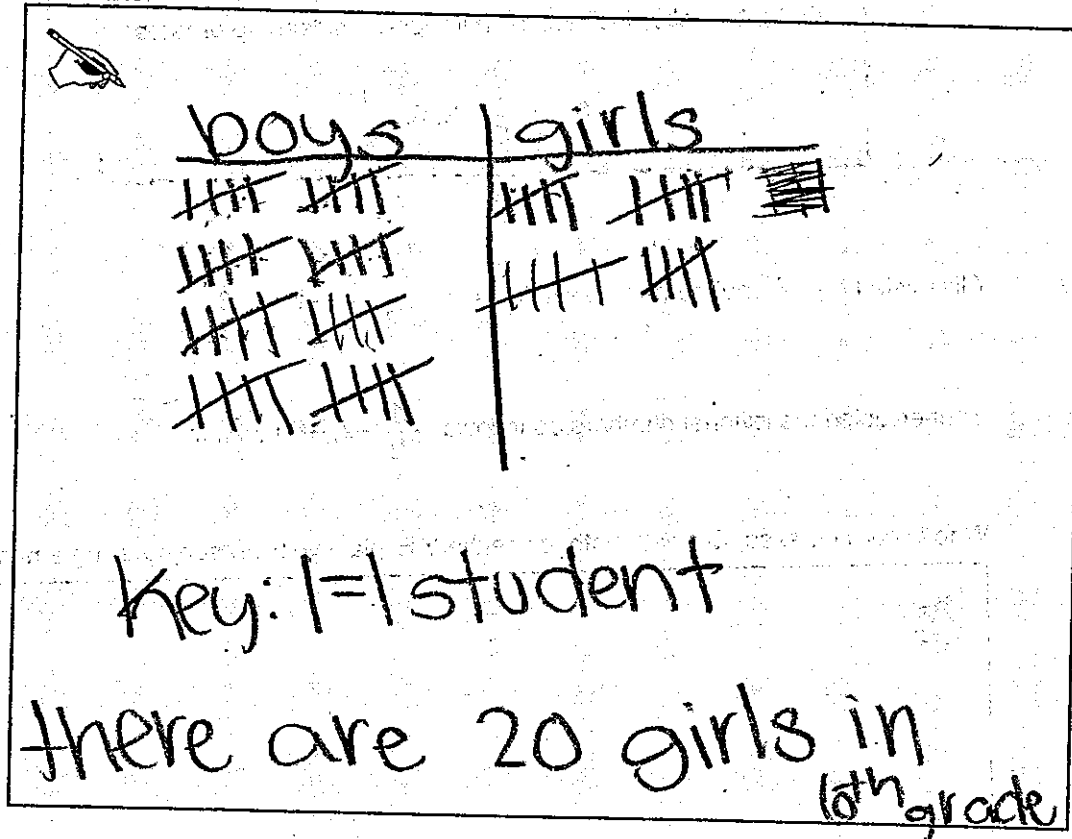 boys girls
Key: | = 1 student
there are 20 girls in
6th grade